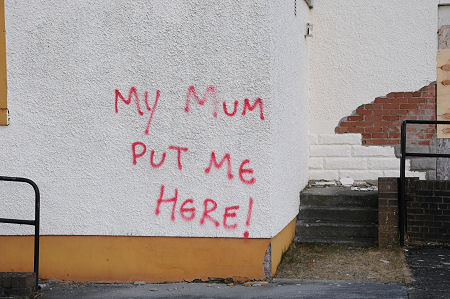 My Mum
PUT ME
HERE!